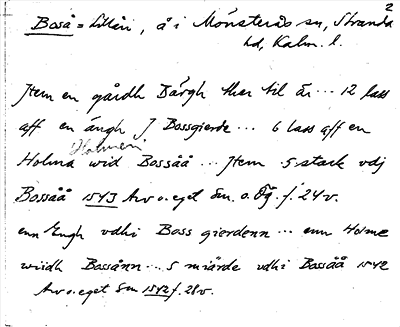 2
Boså = Lillån, å i Mönsterås sn, Stranda
hd, Kalm. l.
Jtem en gårdh Bärgh ther til är ... 12 lass
aff en ängh J Bossgierde... 6 lass aff en
Holmen
Holma wid Bossåå ... Jtem 5 stack vdj
Bossåå 1543 Arv o. eget Sm. o. Ög. f. 24v.
enn Engh vdhi Boss gierdenn ... enn Holme
wiidh Bossånn... 5 miärde vdhi Bossåå 1542
Arv o. eget Sm 1542 f. 28v.